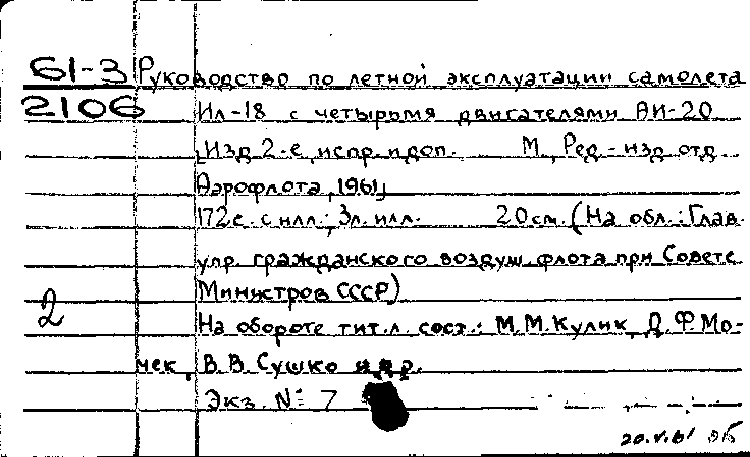 61-3 Руководство по летной эксплуатации самолета
2106 Ил-18 с четырьмя двигателями АИ-20
Изд 2-е, испр. и доп. М., Ред.-изд. отд
Аэрофлота, 1961,
172с. с илл.; 3л. илл. 20см. (На обл.: Глав.
упр. гражданского воздуш. флота при Совете
Министров СССР)
2 На обороте тит. л. сост.: М.М. Кулик, Д.Ф. Мо-
чек, В.В. Сушко и др.
Экз. № 7
20.V.61